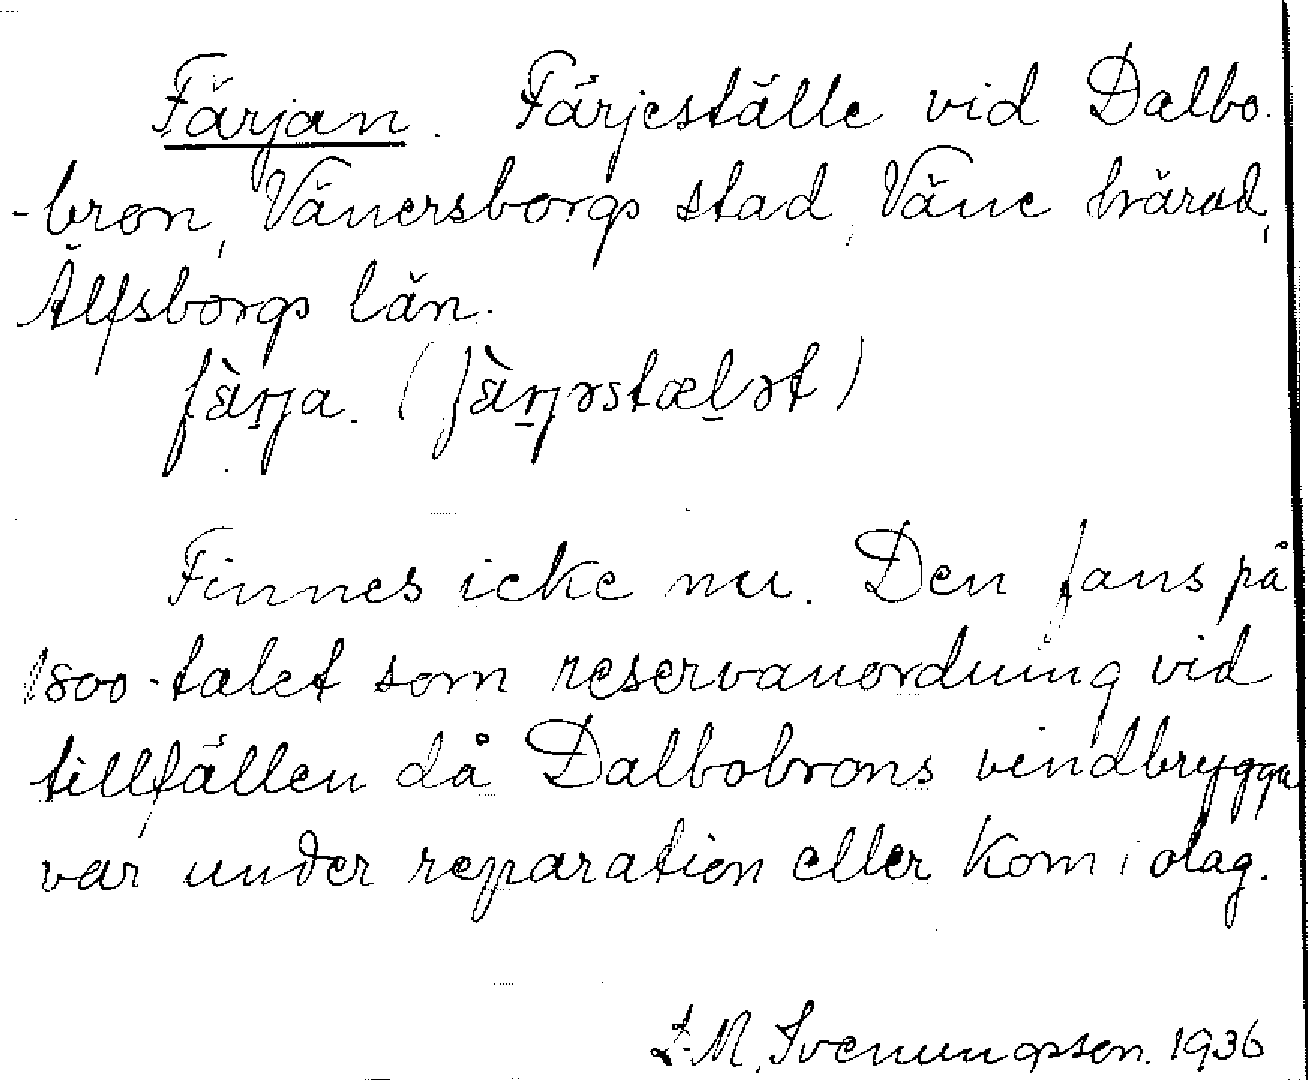 Färjan. Färjeställe vid Dalbo-
-bron, Vänersborgs stad, Väne härad,
Älfsborgs län.
fàrja. (fàrjəstælət)
Finnes icke nu. Den fans på
1800-talet som reservanordning vid
tillfällen då Dalbobrons vindbrygga
var under reparation eller kom i olag.
L. M. Svenungsson. 1936